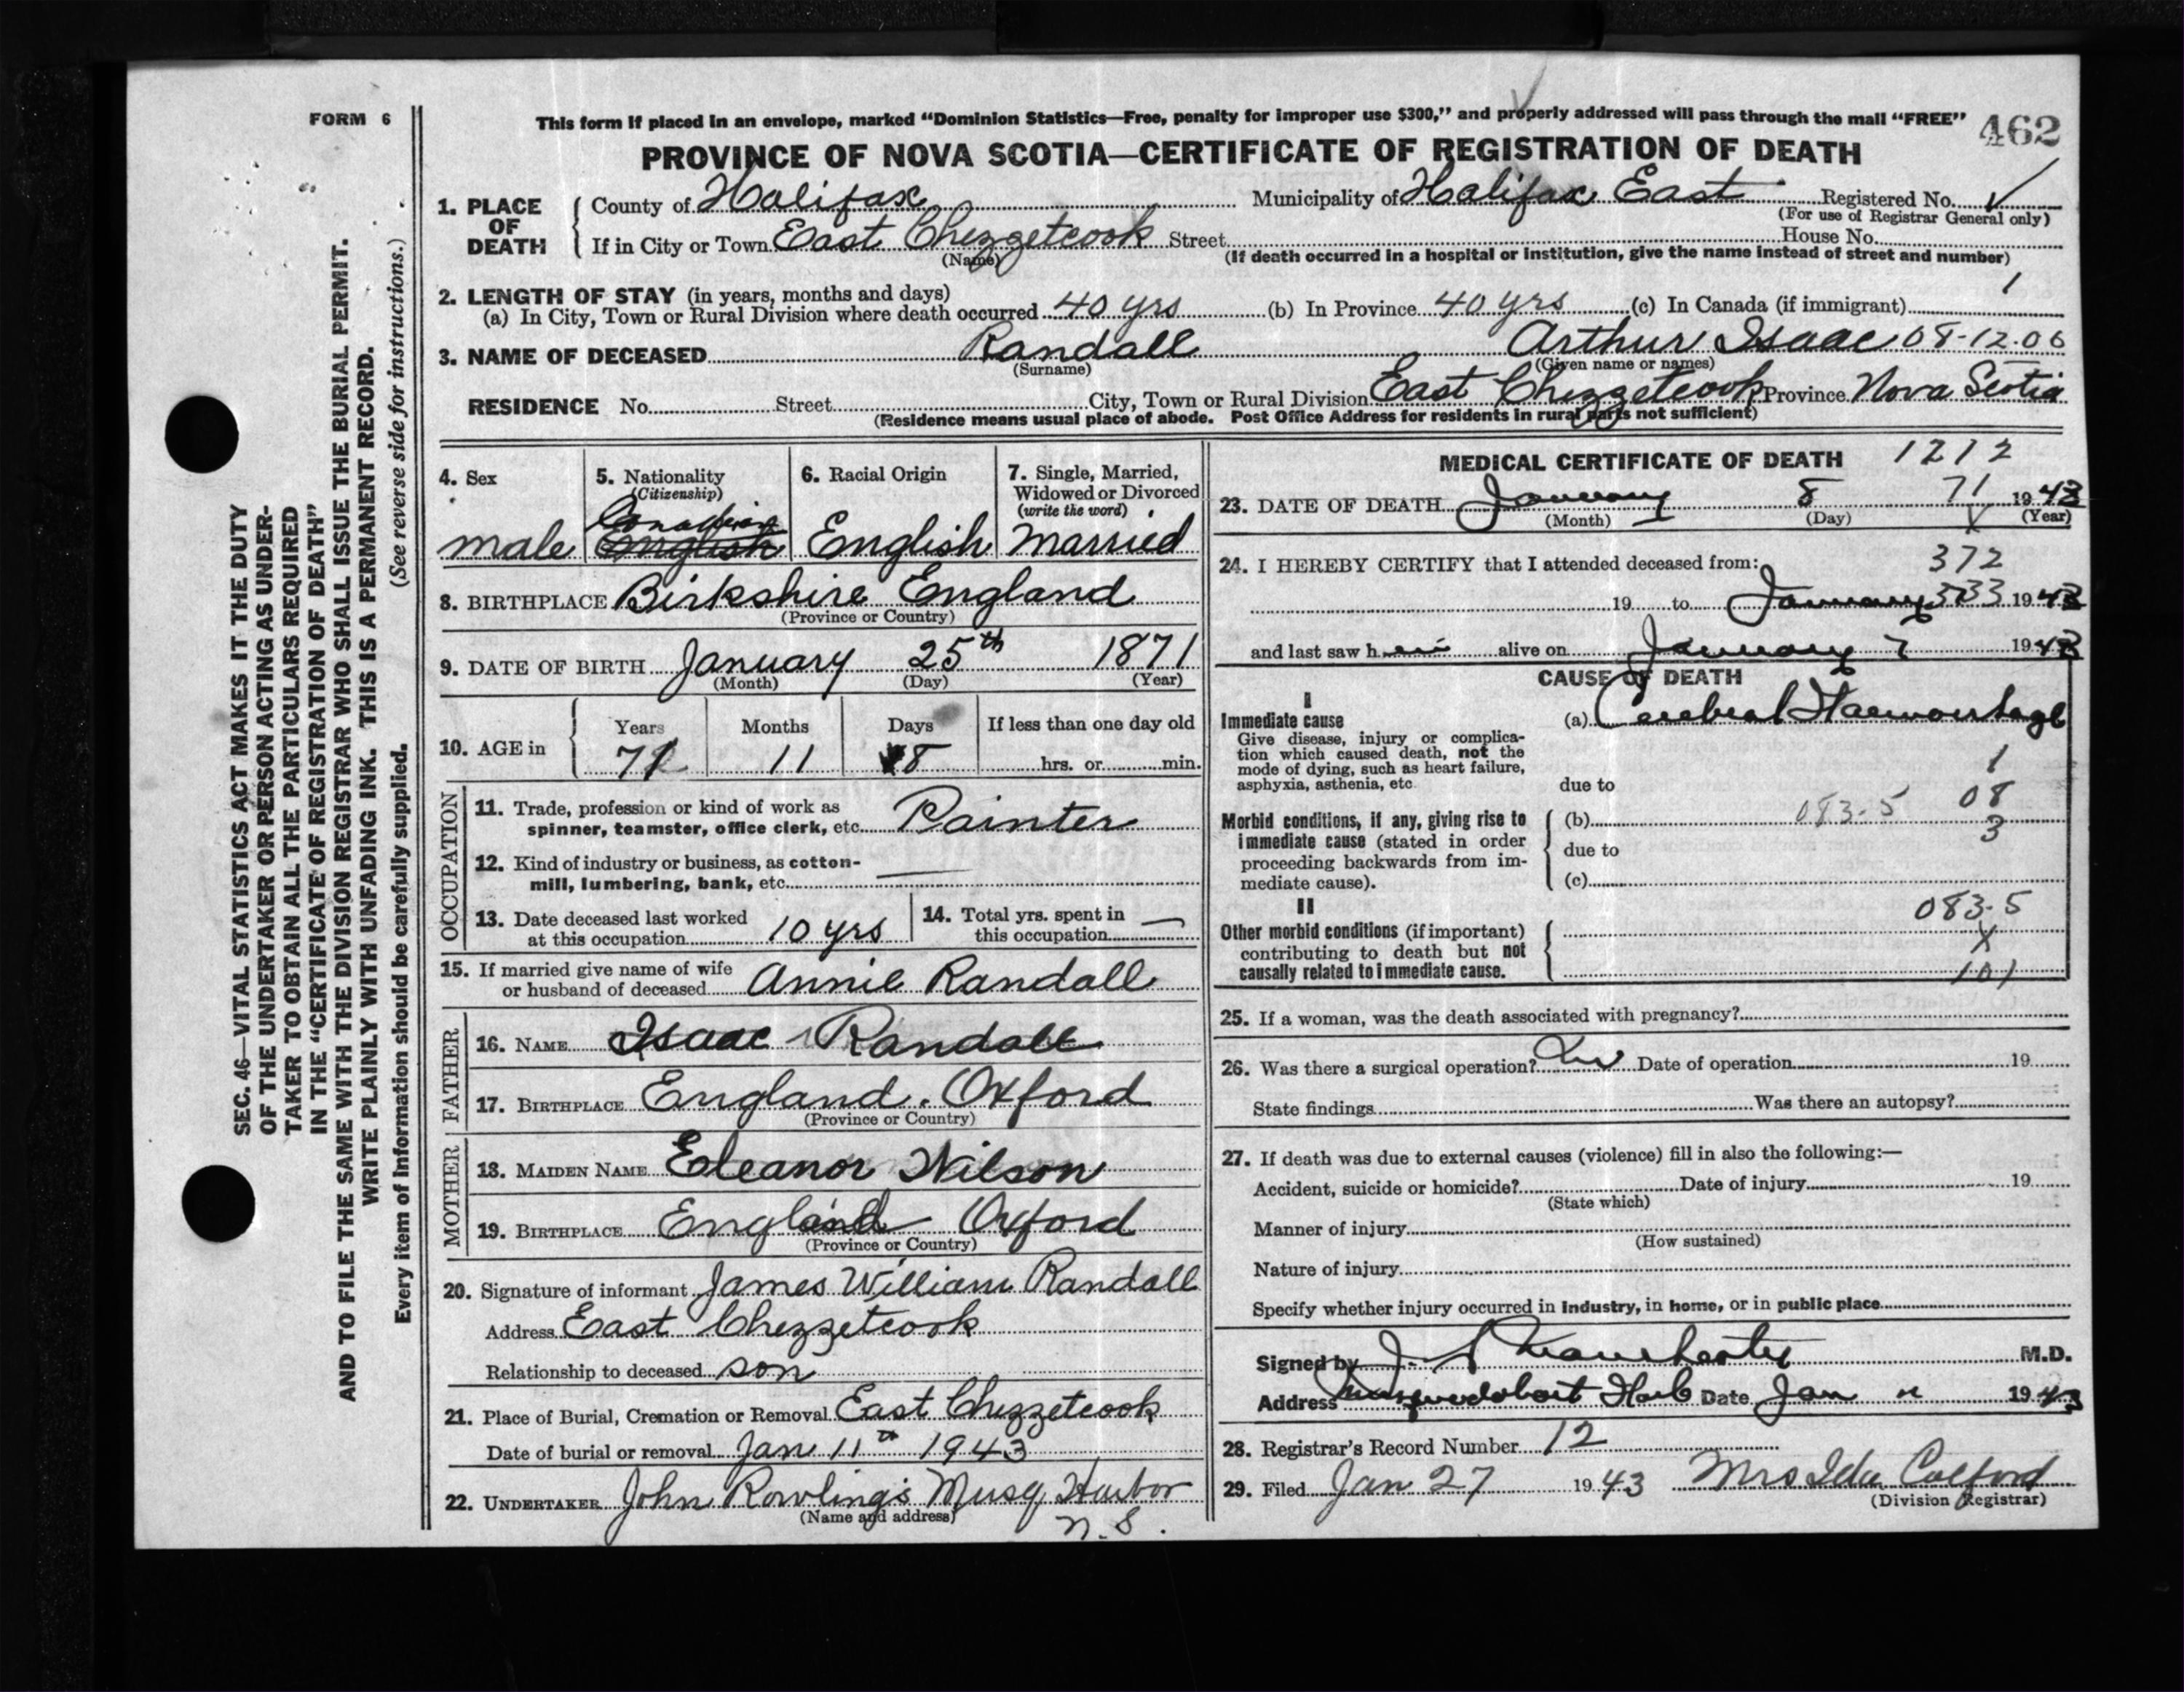 FORM 6
This form if placed in an envelope, marked "Dominion Statistics—Free, penalty for improper use $300," and properly addressed will pass through the mail "FREE"
462
PROVINCE OF NOVA SCOTIA—CERTIFICATE OF REGISTRATION OF DEATH
1. PLACE OF DEATH
County of Halifax Municipality of Halifax East Registered No.
(For use of Registrar General only)
If in City or Town East Chezzetcook Street House No.
(Name) (If death occurred in a hospital or institution, give the name instead of street and number)
2. LENGTH OF STAY (in years, months and days) 1
(a) In City, Town or Rural Division where death occurred 40 yrs (b) In Province 40 yrs (c) In Canada (if immigrant)
3. NAME OF DECEASED Randall Arthur Isaac 08-12.06
(Surname) (Given name or names)
RESIDENCE No. Street City, Town or Rural Division East Chezzetcook Province Nova Scotia
(Residence means usual place of abode. Post Office Address for residents in rural parts not sufficient)
SEC. 46—VITAL STATISTICS ACT MAKES IT THE DUTY
OF THE UNDERTAKER OR PERSON ACTING AS UNDER-
TAKER TO OBTAIN ALL THE PARTICULARS REQUIRED
IN THE "CERTIFICATE OF REGISTRATION OF DEATH"
AND TO FILE THE SAME WITH THE DIVISION REGISTRAR WHO SHALL ISSUE THE BURIAL PERMIT.
WRITE PLAINLY WITH UNFADING INK. THIS IS A PERMANENT RECORD.
Every item of information should be carefully supplied. (See reverse side for instructions.)
4. Sex
male
5. Nationality
(Citizenship)
Canadian
English
6. Racial Origin
English
7. Single, Married,
Widowed or Divorced
(write the word)
Married
8. BIRTHPLACE Birkshire England
(Province or Country)
9. DATE OF BIRTH January 25th 1871
(Month) (Day) (Year)
10. AGE in
Years Months Days If less than one day old
71 11 8 hrs. or min.
OCCUPATION
11. Trade, profession or kind of work as
spinner, teamster, office clerk, etc. Painter
12. Kind of industry or business, as cotton-
mill, lumbering, bank, etc. —
13. Date deceased last worked
at this occupation 10 yrs
14. Total yrs. spent in
this occupation —
15. If married give name of wife
or husband of deceased Annie Randall
FATHER
16. NAME Isaac Randall
17. BIRTHPLACE England. Oxford
(Province or Country)
MOTHER
18. MAIDEN NAME Eleanor Wilson
19. BIRTHPLACE England Oxford
(Province or Country)
20. Signature of informant James William Randall
Address East Chezzetcook
Relationship to deceased son
21. Place of Burial, Cremation or Removal East Chezzetcook
Date of burial or removal Jan 11th 1943
22. UNDERTAKER John Rowlings Musq Harbor
(Name and address)
N.S.
MEDICAL CERTIFICATE OF DEATH 1212
23. DATE OF DEATH January 8 71 1943
(Month) (Day) X (Year)
24. I HEREBY CERTIFY that I attended deceased from: 372
19 to January 333 1943
and last saw h im alive on January 7 1943
CAUSE OF DEATH
I
Immediate cause (a) Cerebral Haemorrhage
Give disease, injury or complica-
tion which caused death, not the
mode of dying, such as heart failure,
asphyxia, asthenia, etc.
1
due to
08
Morbid conditions, if any, giving rise to
immediate cause (stated in order
proceeding backwards from im-
mediate cause).
(b) 083.5 3
due to
(c)
II
083.5
Other morbid conditions (if important)
contributing to death but not
causally related to immediate cause.
X
101
25. If a woman, was the death associated with pregnancy?
26. Was there a surgical operation? No Date of operation 19
State findings Was there an autopsy?
27. If death was due to external causes (violence) fill in also the following:—
Accident, suicide or homicide? Date of injury 19
(State which)
Manner of injury
(How sustained)
Nature of injury
Specify whether injury occurred in industry, in home, or in public place
Signed by M.D.
Address Harb Date Jan 1943
28. Registrar's Record Number 12
29. Filed Jan 27 1943 Mrs Ida Colford
(Division Registrar)